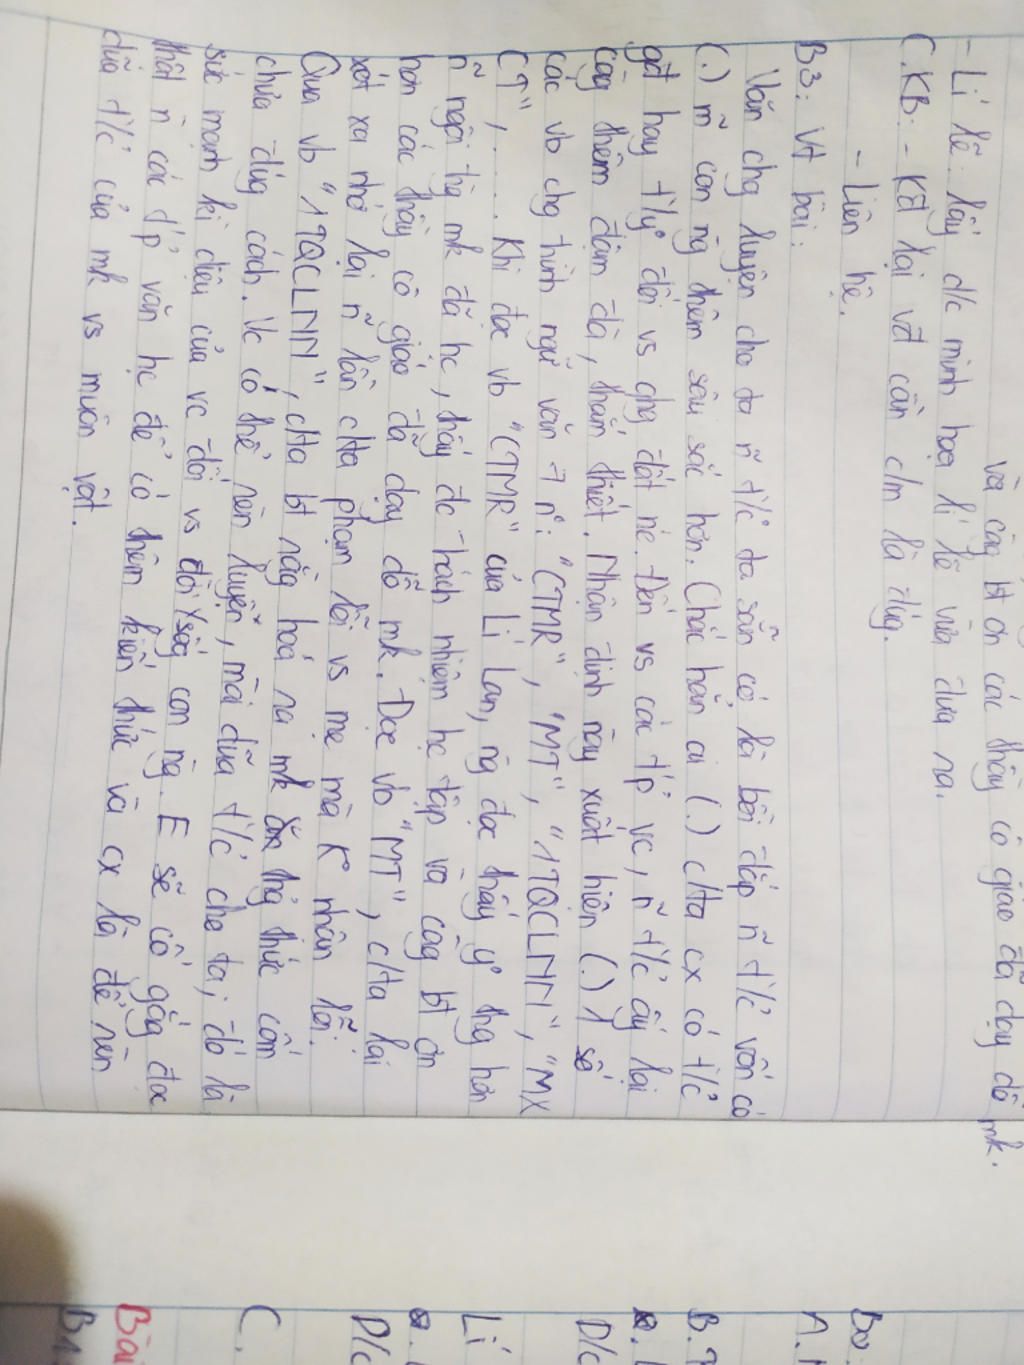 và càg bt ơn các thầy cô giáo đã dạy dỗ mk.
- Lí lẽ: lấy d/c minh họa lí lẽ vừa đưa ra.
C. KB: - KĐ lại vđ cần c/m là đúg.
- Liên hệ.
B3: Vt bài:
Văn chg luyện cho ta ~n t/c ta sẵn có là bồi đắp ~n t/c vốn có
(.) ~m con ng thêm sâu sắc hơn. Chắc hẳn ai (.) c/ta cx có t/c
gđ hay t/y đối vs qhg đất nc. Đến vs các t/p vc, ~n t/c ấy lại
càg thêm đậm đà, thắm thiết. Nhận định này xuất hiện (.) 1 số
các vb chg trình ngữ văn 7 n: "CTMR", "MT", "1TQCLNN", "MX
CT", ..... Khi đọc vb "CTMR" của Lí Lan, ng đọc thấy y thg hơn
~n ngôi trg mk đã hc, thấy đc trách nhiệm hc tập và càg bt ơn
hơn các thầy cô giáo đã dạy dỗ mk. Đọc vb "MT", c/ta lại
xót xa nhớ lại ~n lần c/ta phạm lỗi vs mẹ mà K nhận lỗi.
Qua vb "1TQCLNN", c/ta bt rằg hoá ra mk ăn thg thức cốm
chưa đúg cách. Vc có thể rèn luyện, mài dũa t/c cho ta; đó là
sức mạnh kì diệu của vc đối vs đời sốg con ng. E sẽ cố gắg đọc
thật ~n các t/p văn hc để có thêm kiến thức và cx là để rèn
dũa t/c của mk vs muôn vật.
A.
B.
D/c
Lí
D/c
C.
Bài
B1